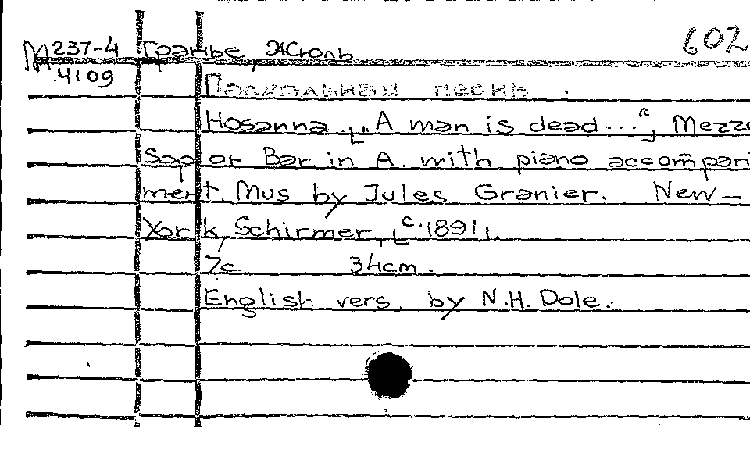 602
М 237-4 Гранье, Жюль
4109
Пасхальная песнь.
Hosanna ["A man is dead..."] Mezzo
Sop or Bar in A. with piano accompani
ment. Mus by Jules Granier. New-
York, Schirmer, [c. 1891].
7c 34cm.
English vers. by N.H. Dole.